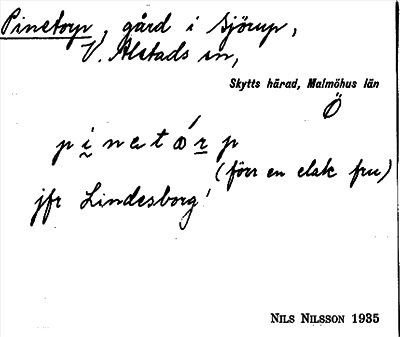 Pinetorp, gård i Sjörup,
V. Alstads sn,
Skytts härad, Malmöhus län
Ö
pinetórp
(förr en elak fru)
jfr Lindesborg!
NILS NILSSON 1935